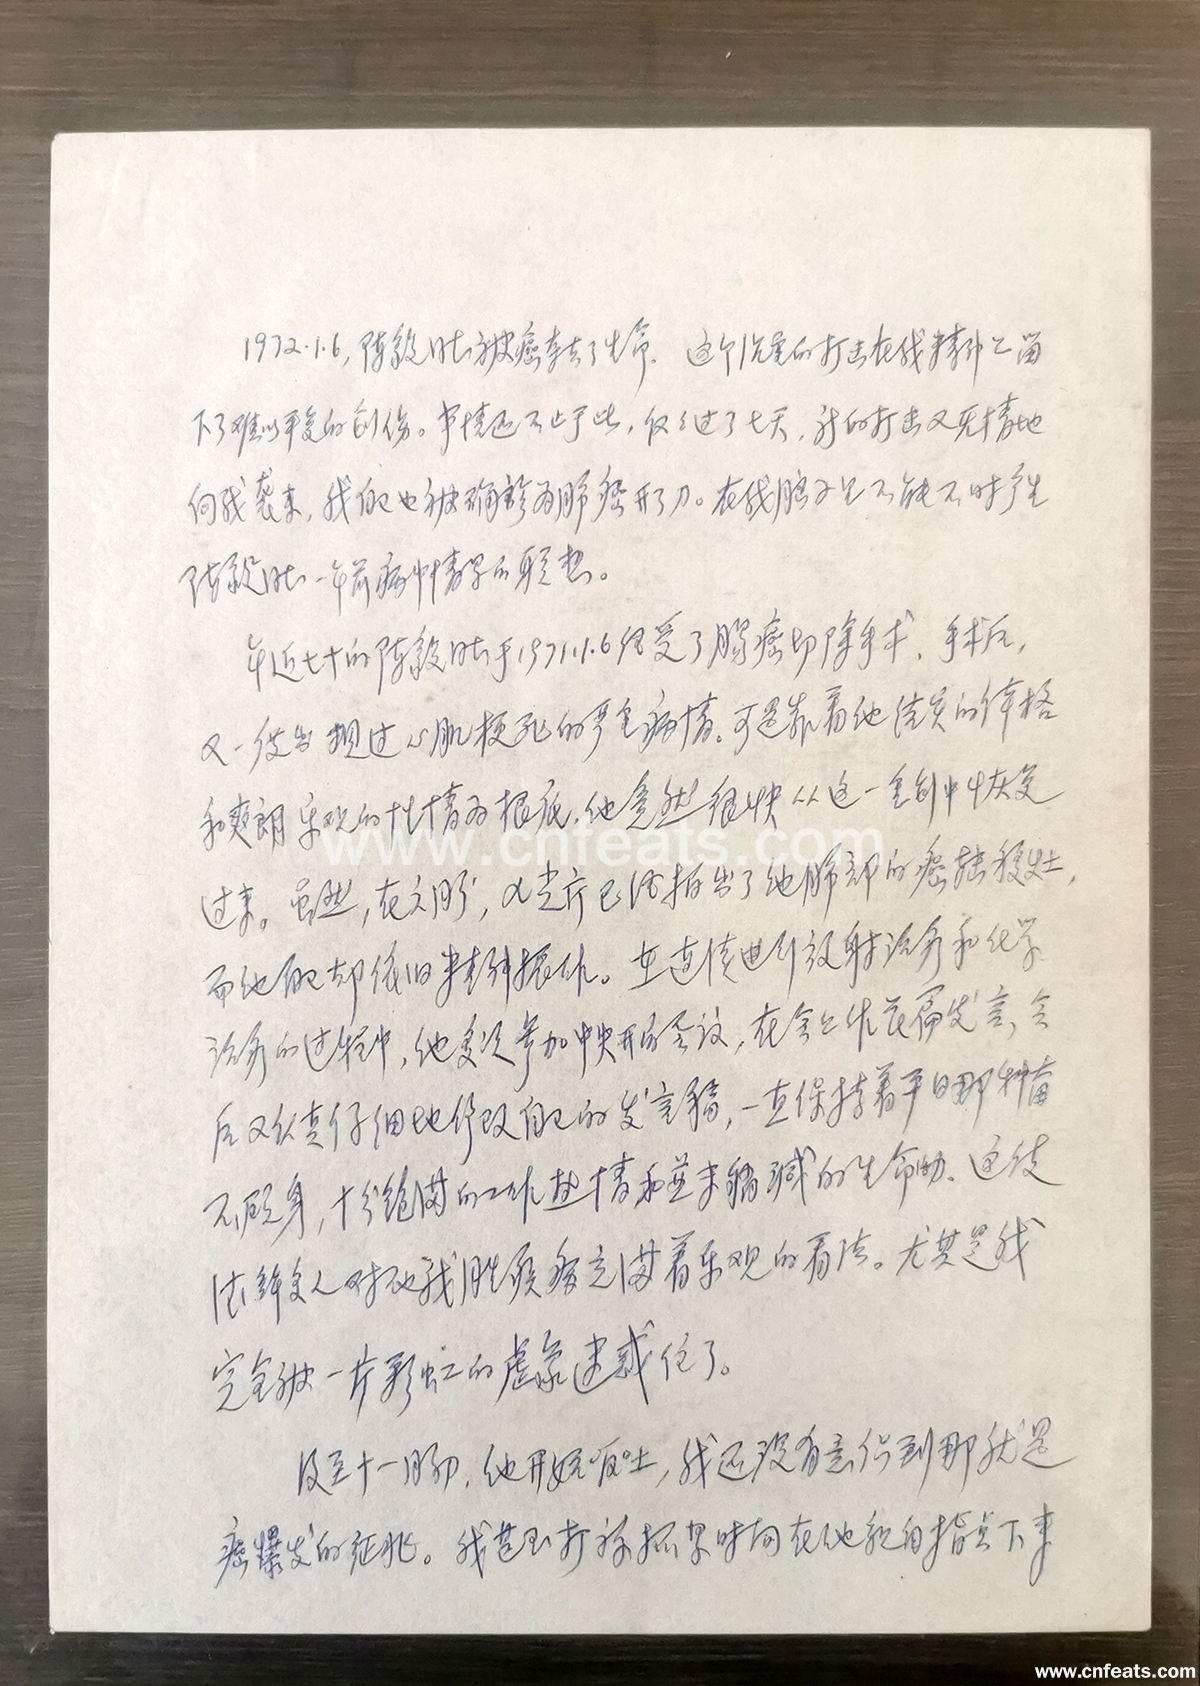 1972.1.6，陈毅同志被癌夺去了生命．这个沉重的打击在我精神上留
下了难以平复的创伤。事情还不止于此，仅仅过了七天，新的打击又无情地
向我袭来，我自己也被确诊为肺癌开了刀。在我脑子里不能不时产生
陈毅同志一年前病中情景的联想。
年近七十的陈毅同志于1971.1.6经受了肠癌切除手术．手术后，
又一度出现过心肌梗死的严重病情。可是靠着他结实的体格
和爽朗乐观的性情为根底．他竟然很快从这一重创中恢复
过来。虽然，在六月份，X光片已经拍出了他肺部的癌转移灶，
而他自己却依旧精神振作。在连续进行放射治疗和化学
治疗的过程中，他多次参加中央开的会议，在会上作长篇发言，会
后又认真仔细地修改自己的发言稿，一直保持着平日那种奋
不顾身，十分饱满的工作热情和并未稍减的生命力．这使
许多人对他战胜顽疾充满着乐观的看法。尤其是我
完全被一片彩虹的虚象迷惑住了。
及至十一月初．他开始呕吐，我还没有意识到那就是
癌爆发的征兆。我甚至打算抓紧时间在他亲自指点下来
www.cnfeats.com
www.cnfeats.com